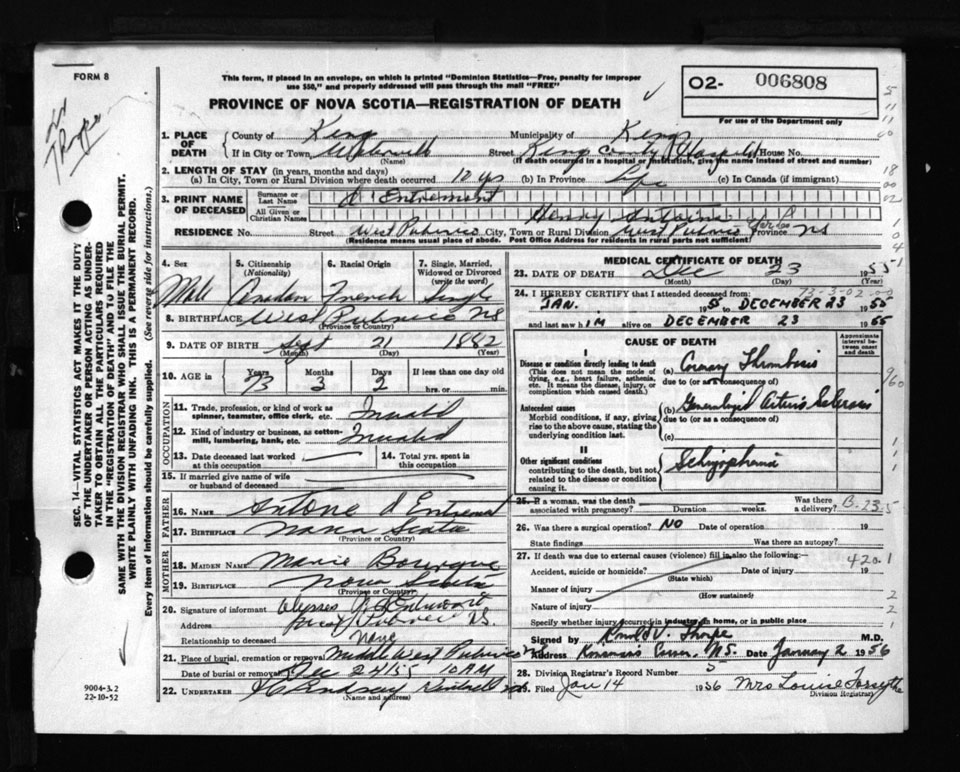 FORM 8
This form, if placed in an envelope, on which is printed "Dominion Statistics—Free, penalty for improper
use $50," and properly addressed will pass through the mail "FREE"
PROVINCE OF NOVA SCOTIA—REGISTRATION OF DEATH
O2- 006808
For use of the Department only
1. PLACE OF DEATH
County of Kings Municipality of Kings
If in City or Town Waterville Street Kings County Hospital House No.
(Name) (If death occurred in a hospital or institution, give the name instead of street and number)
2. LENGTH OF STAY (in years, months and days)
(a) In City, Town or Rural Division where death occurred 10 yrs (b) In Province Life (c) In Canada (if immigrant)
3. PRINT NAME OF DECEASED
Surname or Last Name d'Entremont
All Given or Christian Names Henry Antoine
RESIDENCE No. Street West Pubnico City, Town or Rural Division West Pubnico Province NS
(Residence means usual place of abode. Post Office Address for residents in rural parts not sufficient)
4. Sex
Male
5. Citizenship
(Nationality)
6. Racial Origin
French
7. Single, Married, Widowed or Divorced
(write the word)
Single
8. BIRTHPLACE West Pubnico NS
(Province or Country)
9. DATE OF BIRTH Sept 21 1882
(Month) (Day) (Year)
10. AGE in
Years Months Days If less than one day old
73 3 2 hrs. or min.
OCCUPATION
11. Trade, profession, or kind of work as
spinner, teamster, office clerk, etc. Invalid
12. Kind of industry or business, as cotton-
mill, lumbering, bank, etc. Invalid
13. Date deceased last worked
at this occupation
14. Total yrs. spent in
this occupation
15. If married give name of wife
or husband of deceased
FATHER
16. NAME Antone d Entremont
17. BIRTHPLACE Nova Scotia
(Province or Country)
MOTHER
18. MAIDEN NAME Marie
19. BIRTHPLACE Nova Scotia
(Province or Country)
20. Signature of informant Ulysses d'Entremont
Address West Pubnico NS.
Relationship to deceased None
21. Place of burial, cremation or removal Middle West Pubnico NS
Date of burial or removal Dec 24/55 10 AM
22. UNDERTAKER Lindsay
(Name and address)
MEDICAL CERTIFICATE OF DEATH
23. DATE OF DEATH Dec 23 1955
(Month) (Day) (Year)
73-3-02
24. I HEREBY CERTIFY that I attended deceased from:
JAN. 1955 to DECEMBER 23 1955
and last saw him alive on DECEMBER 23 1955
CAUSE OF DEATH
Approximate interval between onset and death
I
Disease or condition directly leading to death
(This does not mean the mode of
dying, e.g., heart failure, asthenia,
etc. It means the disease, injury, or
complication which caused death.)
(a) Coronary Thrombosis
due to (or as a consequence of)
Antecedent causes
Morbid conditions, if any, giving
rise to the above cause, stating the
underlying condition last.
(b) Generalized Arterio Sclerosis
due to (or as a consequence of)
(c)
II
Other significant conditions
contributing to the death, but not
related to the disease or condition
causing it.
Schizophrenia
25. If a woman, was the death
associated with pregnancy? Duration weeks. Was there a delivery?
B. 23.5
26. Was there a surgical operation? NO Date of operation 19
State findings Was there an autopsy?
27. If death was due to external causes (violence) fill in also the following:—
420.1
Accident, suicide or homicide? Date of injury 19
(State which)
Manner of injury
(How sustained)
Nature of injury
Specify whether injury occurred in industry, in home, or in public place
Signed by V. Thorpe M.D.
Address NS. Date January 2 1956
28. Division Registrar's Record Number 5
29. Filed Jan 14 1956 Mrs Louise Forsythe
Division Registrar
SEC. 14—VITAL STATISTICS ACT MAKES IT THE DUTY
OF THE UNDERTAKER OR PERSON ACTING AS UNDER-
TAKER TO OBTAIN ALL THE PARTICULARS REQUIRED
IN THE "REGISTRATION OF DEATH" AND TO FILE THE
SAME WITH THE DIVISION REGISTRAR WHO SHALL ISSUE THE BURIAL PERMIT.
WRITE PLAINLY WITH UNFADING INK. THIS IS A PERMANENT RECORD.
Every item of information should be carefully supplied. (See reverse side for instructions.)
9004-3.2
22-10-52